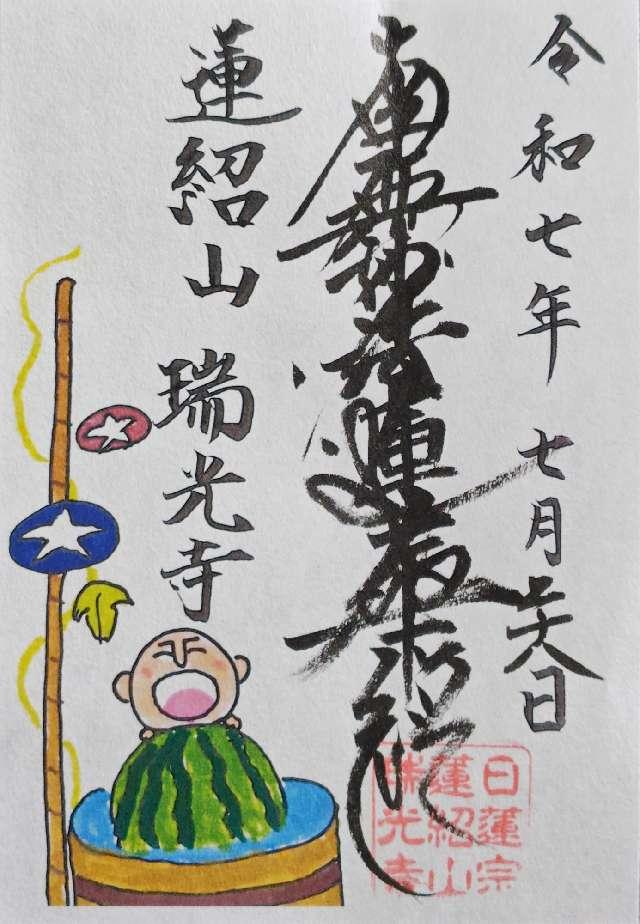 令和七年 七月 日
南無妙法蓮華経
蓮紹山 瑞光寺
日蓮宗
蓮紹山
瑞光寺